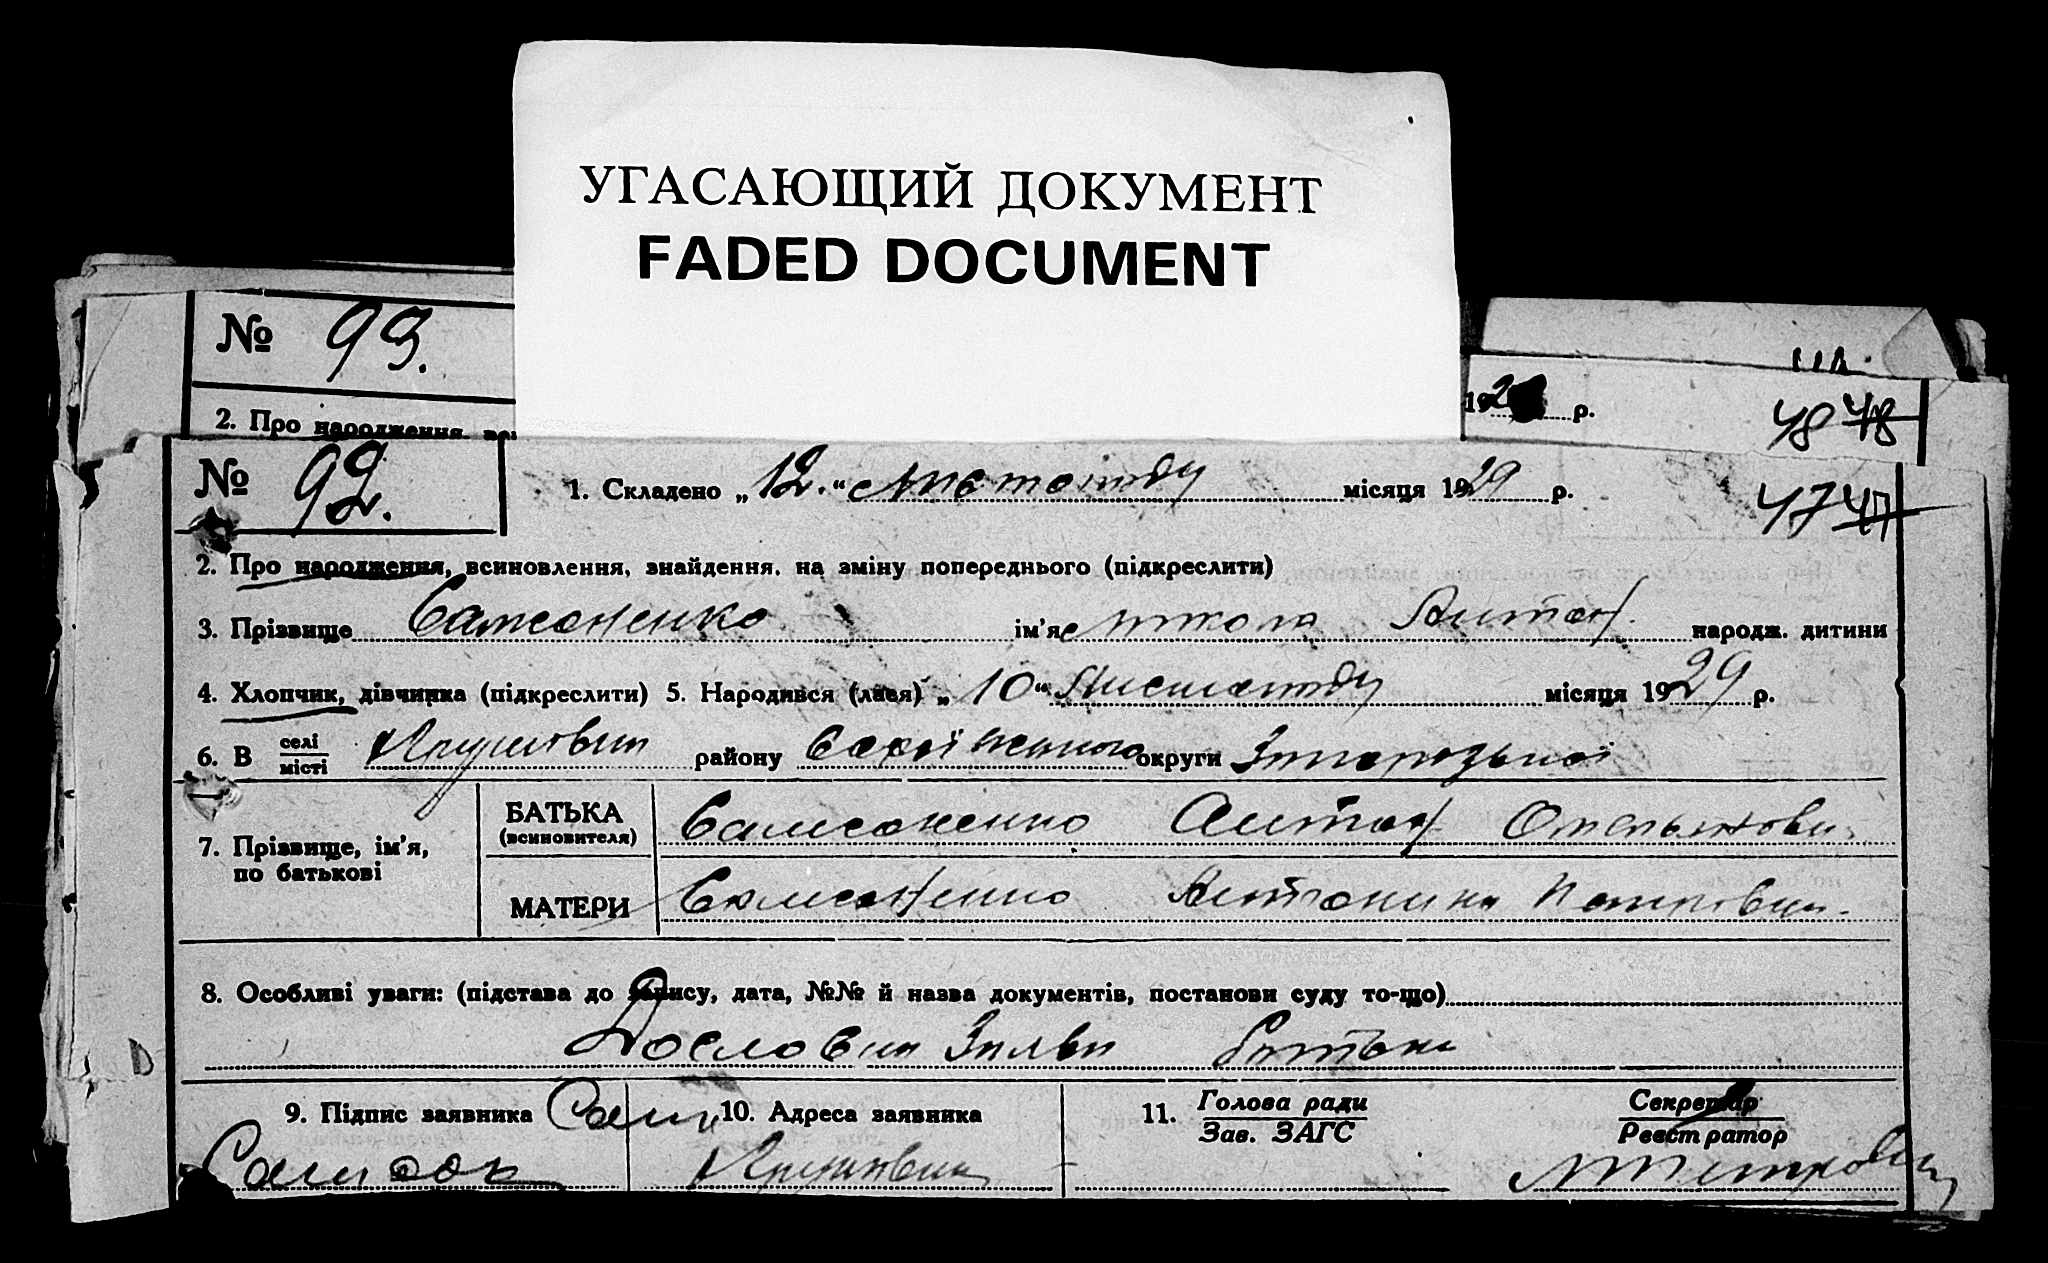 УГАСАЮЩИЙ ДОКУМЕНТ
FADED DOCUMENT
№ 93.
19 р.
48 48
2. Про народження,
№ 92.
1. Складено „12.“ Листопаду місяця 1929 р.
47 47
2. Про народження, всиновлення, знайдення, на зміну попереднього (підкреслити)
3. Прізвище Самсоненко ім'я Микола Антон. народж. дитини
4. Хлопчик, дівчинка (підкреслити) 5. Народився (лася) „10“ Листопаду місяця 1929 р.
6. В селі
місті
району округи Запорізької
7. Прізвище, ім'я,
по батькові
БАТЬКА
(всиновителя)
Самсоненко Антон Омельянови
МАТЕРИ
Самсоненко Антонина
8. Особливі уваги: (підстава до запису, дата, №№ й назва документів, постанови суду то-що)
Дословна Заява батька
9. Підпис заявника Сам
10. Адреса заявника
11. Голова ради
Зав. ЗАГС
Секретар
Реєстратор